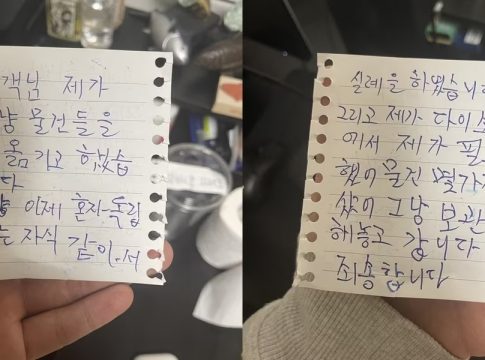 객님 제가
냥 물건들을
옮기고 했습
다
냥 이제 혼자 독립
는 자식 같아서
실례을 하였습니다
그리고 제가 다이소
에서 제가 필
했어 물건 몇가지
샀어 그냥 보관
해놓고 갑니다
죄송합니다